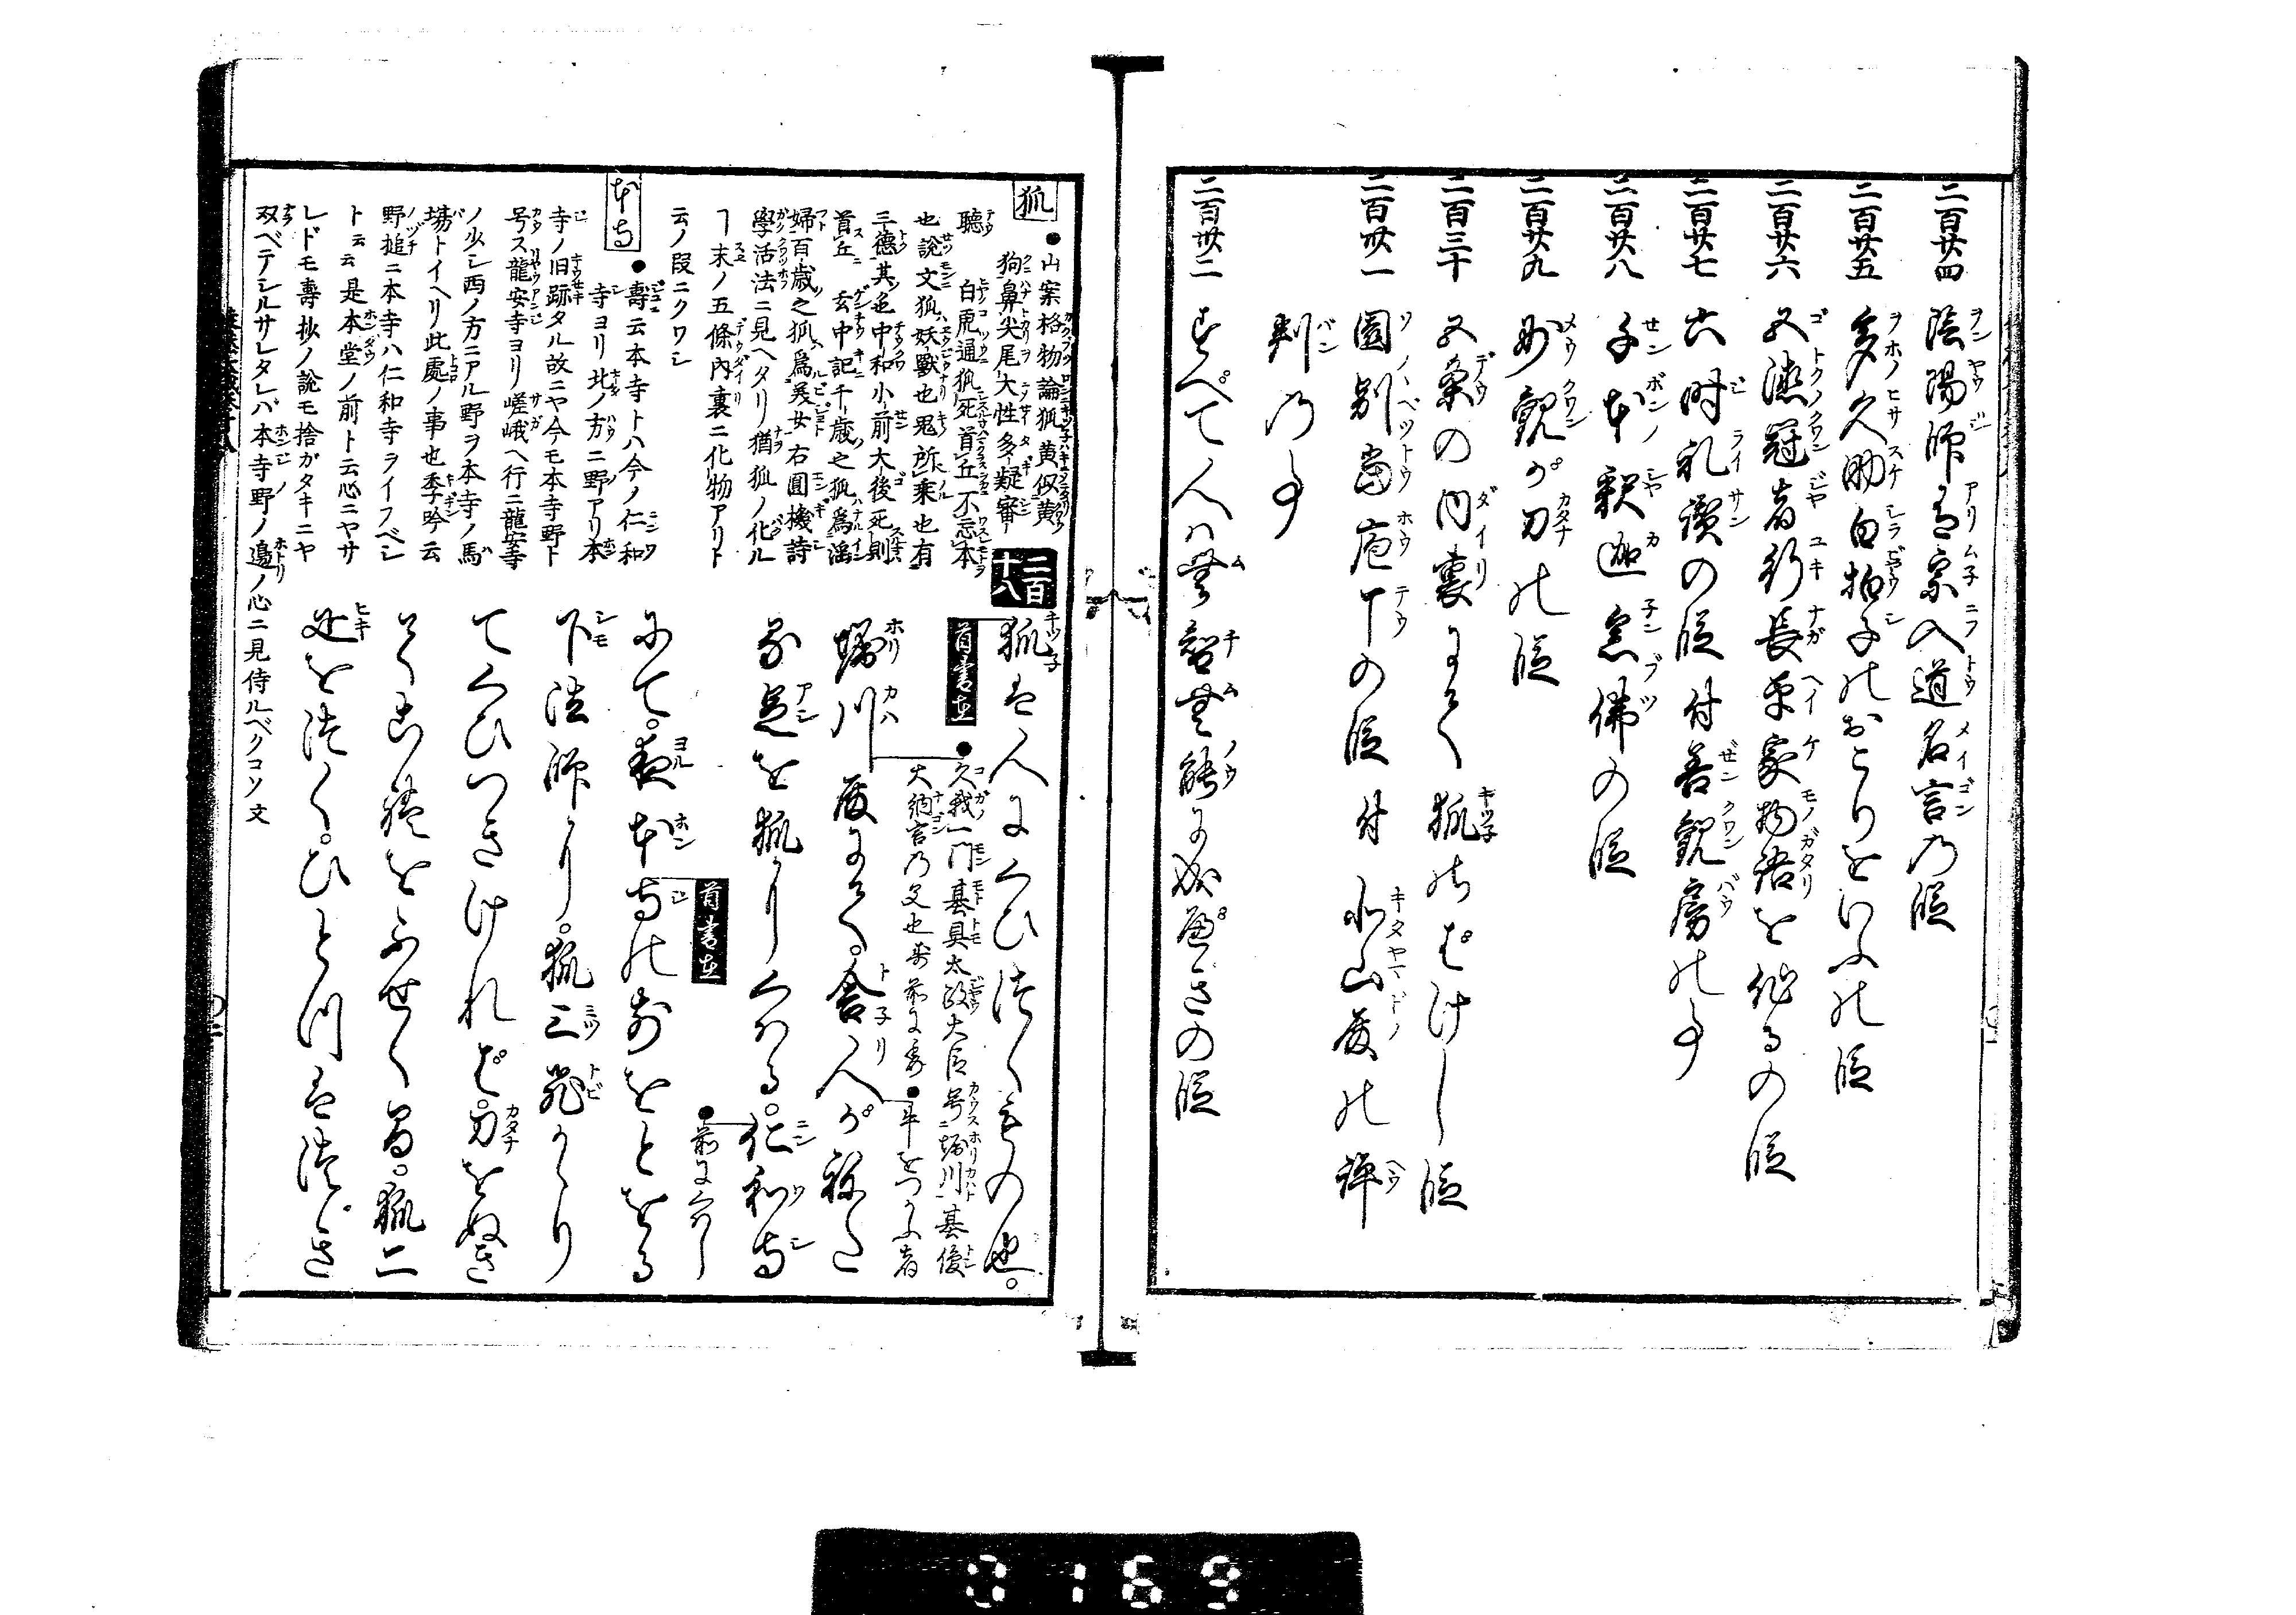 二百廿四 陰陽師有宗入道名言乃段
二百廿五 多久助白拍子のおこりをいふの段
二百廿六 五徳冠者行長平家物語を作るの段
二百廿七 六時礼讃の段付善観房の事
二百廿八 千本釈迦念佛の段
二百廿九 妙観が刀の段
二百三十 五条の内裏にて狐のばけし段
二百卅一 園別當庖丁の段付北山殿の評
判乃事
二百卅二 すべて人は無智無能に成べきの段
狐
●山案格物論狐黄似黄
狗鼻尖尾大性多疑審
聴 白虎通狐死首丘不忘本
也説文狐妖獣也鬼所乗也有
三徳其色中和小前大後死則
首丘 玄中記千歳之狐為淫
婦百歳之狐為美女 右圓機詩
學活法ニ見ヘタリ猶狐ノ化ル
ヿ末ノ五條内裏ニ化物アリト
云ノ段ニクワシ
本寺
●壽云本寺トハ今ノ仁和
寺ヨリ北ノ方ニ野アリ本
寺ノ旧跡タル故ニヤ今モ本寺野ト
号ス龍安寺ヨリ嵯峨ヘ行ニ龍安寺
ノ少シ西ノ方ニアル野ヲ本寺ノ馬
場トイヘリ此處ノ事也季吟云
野槌ニ本寺ハ仁和寺ヲイフベシ
ト云云是本堂ノ前ト云心ニヤサ
レドモ壽抄ノ説モ捨ガタキニヤ
双ベテシルサレタレバ本寺野ノ邊ノ心ニ見侍ルベクコソ文
二百十八
狐は人にくひつくもの也。
首書在
●久我一門基具太政大臣号ニ堀川ト基俊
大納言乃父也
堀川殿にて。舎人がねた
●牛をつかふ者
る足を狐にくはる。仁和寺
●前に有し
にて。夜本寺の前をとをる
首書在
下法師に。狐三飛かゝり
てくひつきければ。刀をぬき
てこれをふせく間。狐二
疋を突く。ひとつはつき